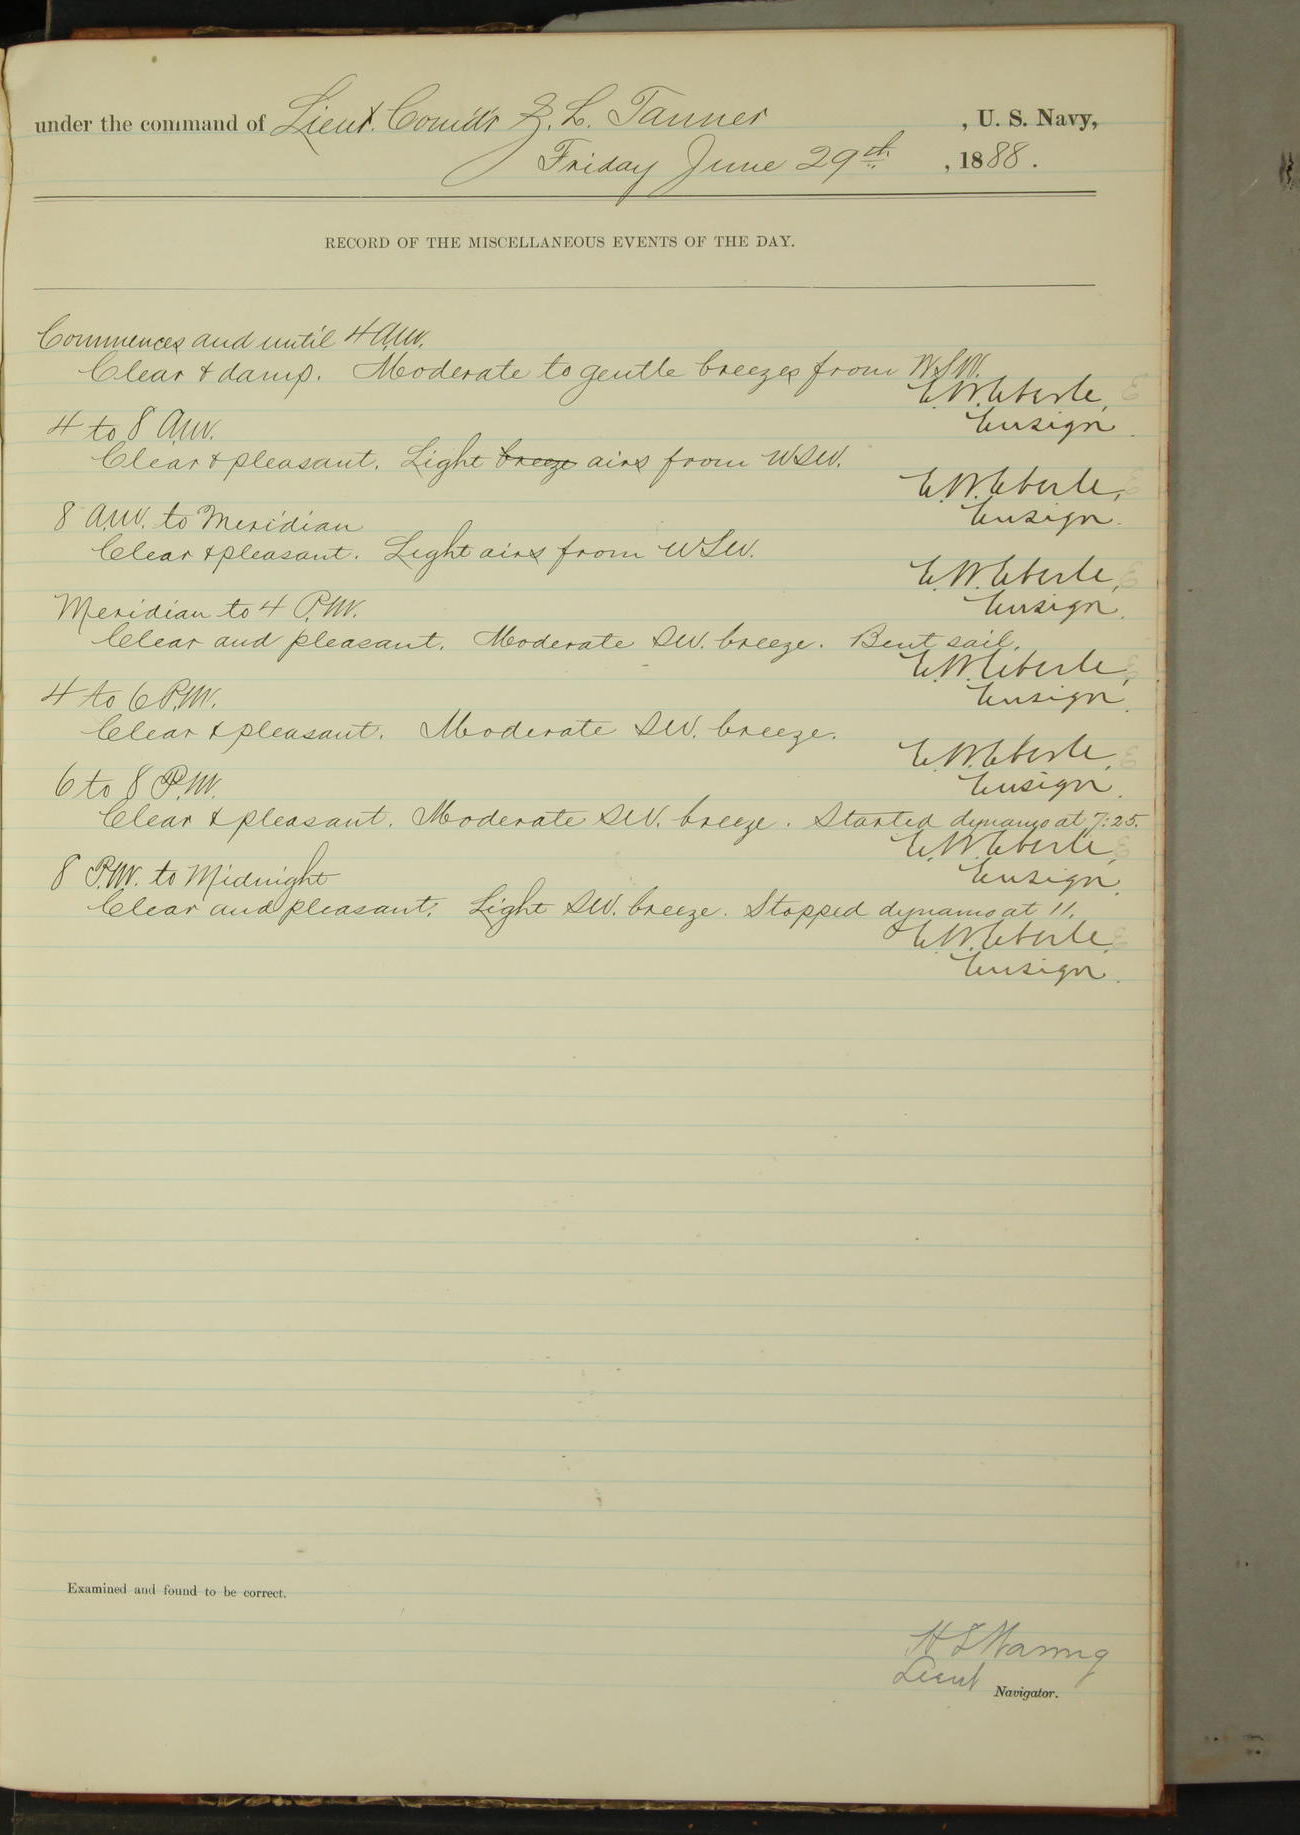 under the command of Lieut. Comd'r Z. L. Tanner, U. S. Navy,
Friday June 29th, 1888.
RECORD OF THE MISCELLANEOUS EVENTS OF THE DAY.
Commences and until 4 A.M.
Clear & damp. Moderate to gentle breezes from W.S.W.
E.W. Eberle,
Ensign.
4 to 8 A.M.
Clear & pleasant. Light breeze airs from WSW.
E.W. Eberle,
Ensign.
8 A.M. to Meridian
Clear & pleasant. Light airs from WSW.
E.W. Eberle,
Ensign.
Meridian to 4 P.M.
Clear and pleasant. Moderate SW. breeze. Bent sail.
E.W. Eberle,
Ensign.
4 to 6 P.M.
Clear & pleasant. Moderate SW. breeze.
E.W. Eberle,
Ensign.
6 to 8 P.M.
Clear & pleasant. Moderate SW. breeze. Started dynamo at 7:25.
E.W. Eberle,
Ensign.
8 P.M. to Midnight
Clear and pleasant. Light SW. breeze. Stopped dynamo at 11.
E.W. Eberle,
Ensign.
Examined and found to be correct.
H S Waring
Lieut Navigator.